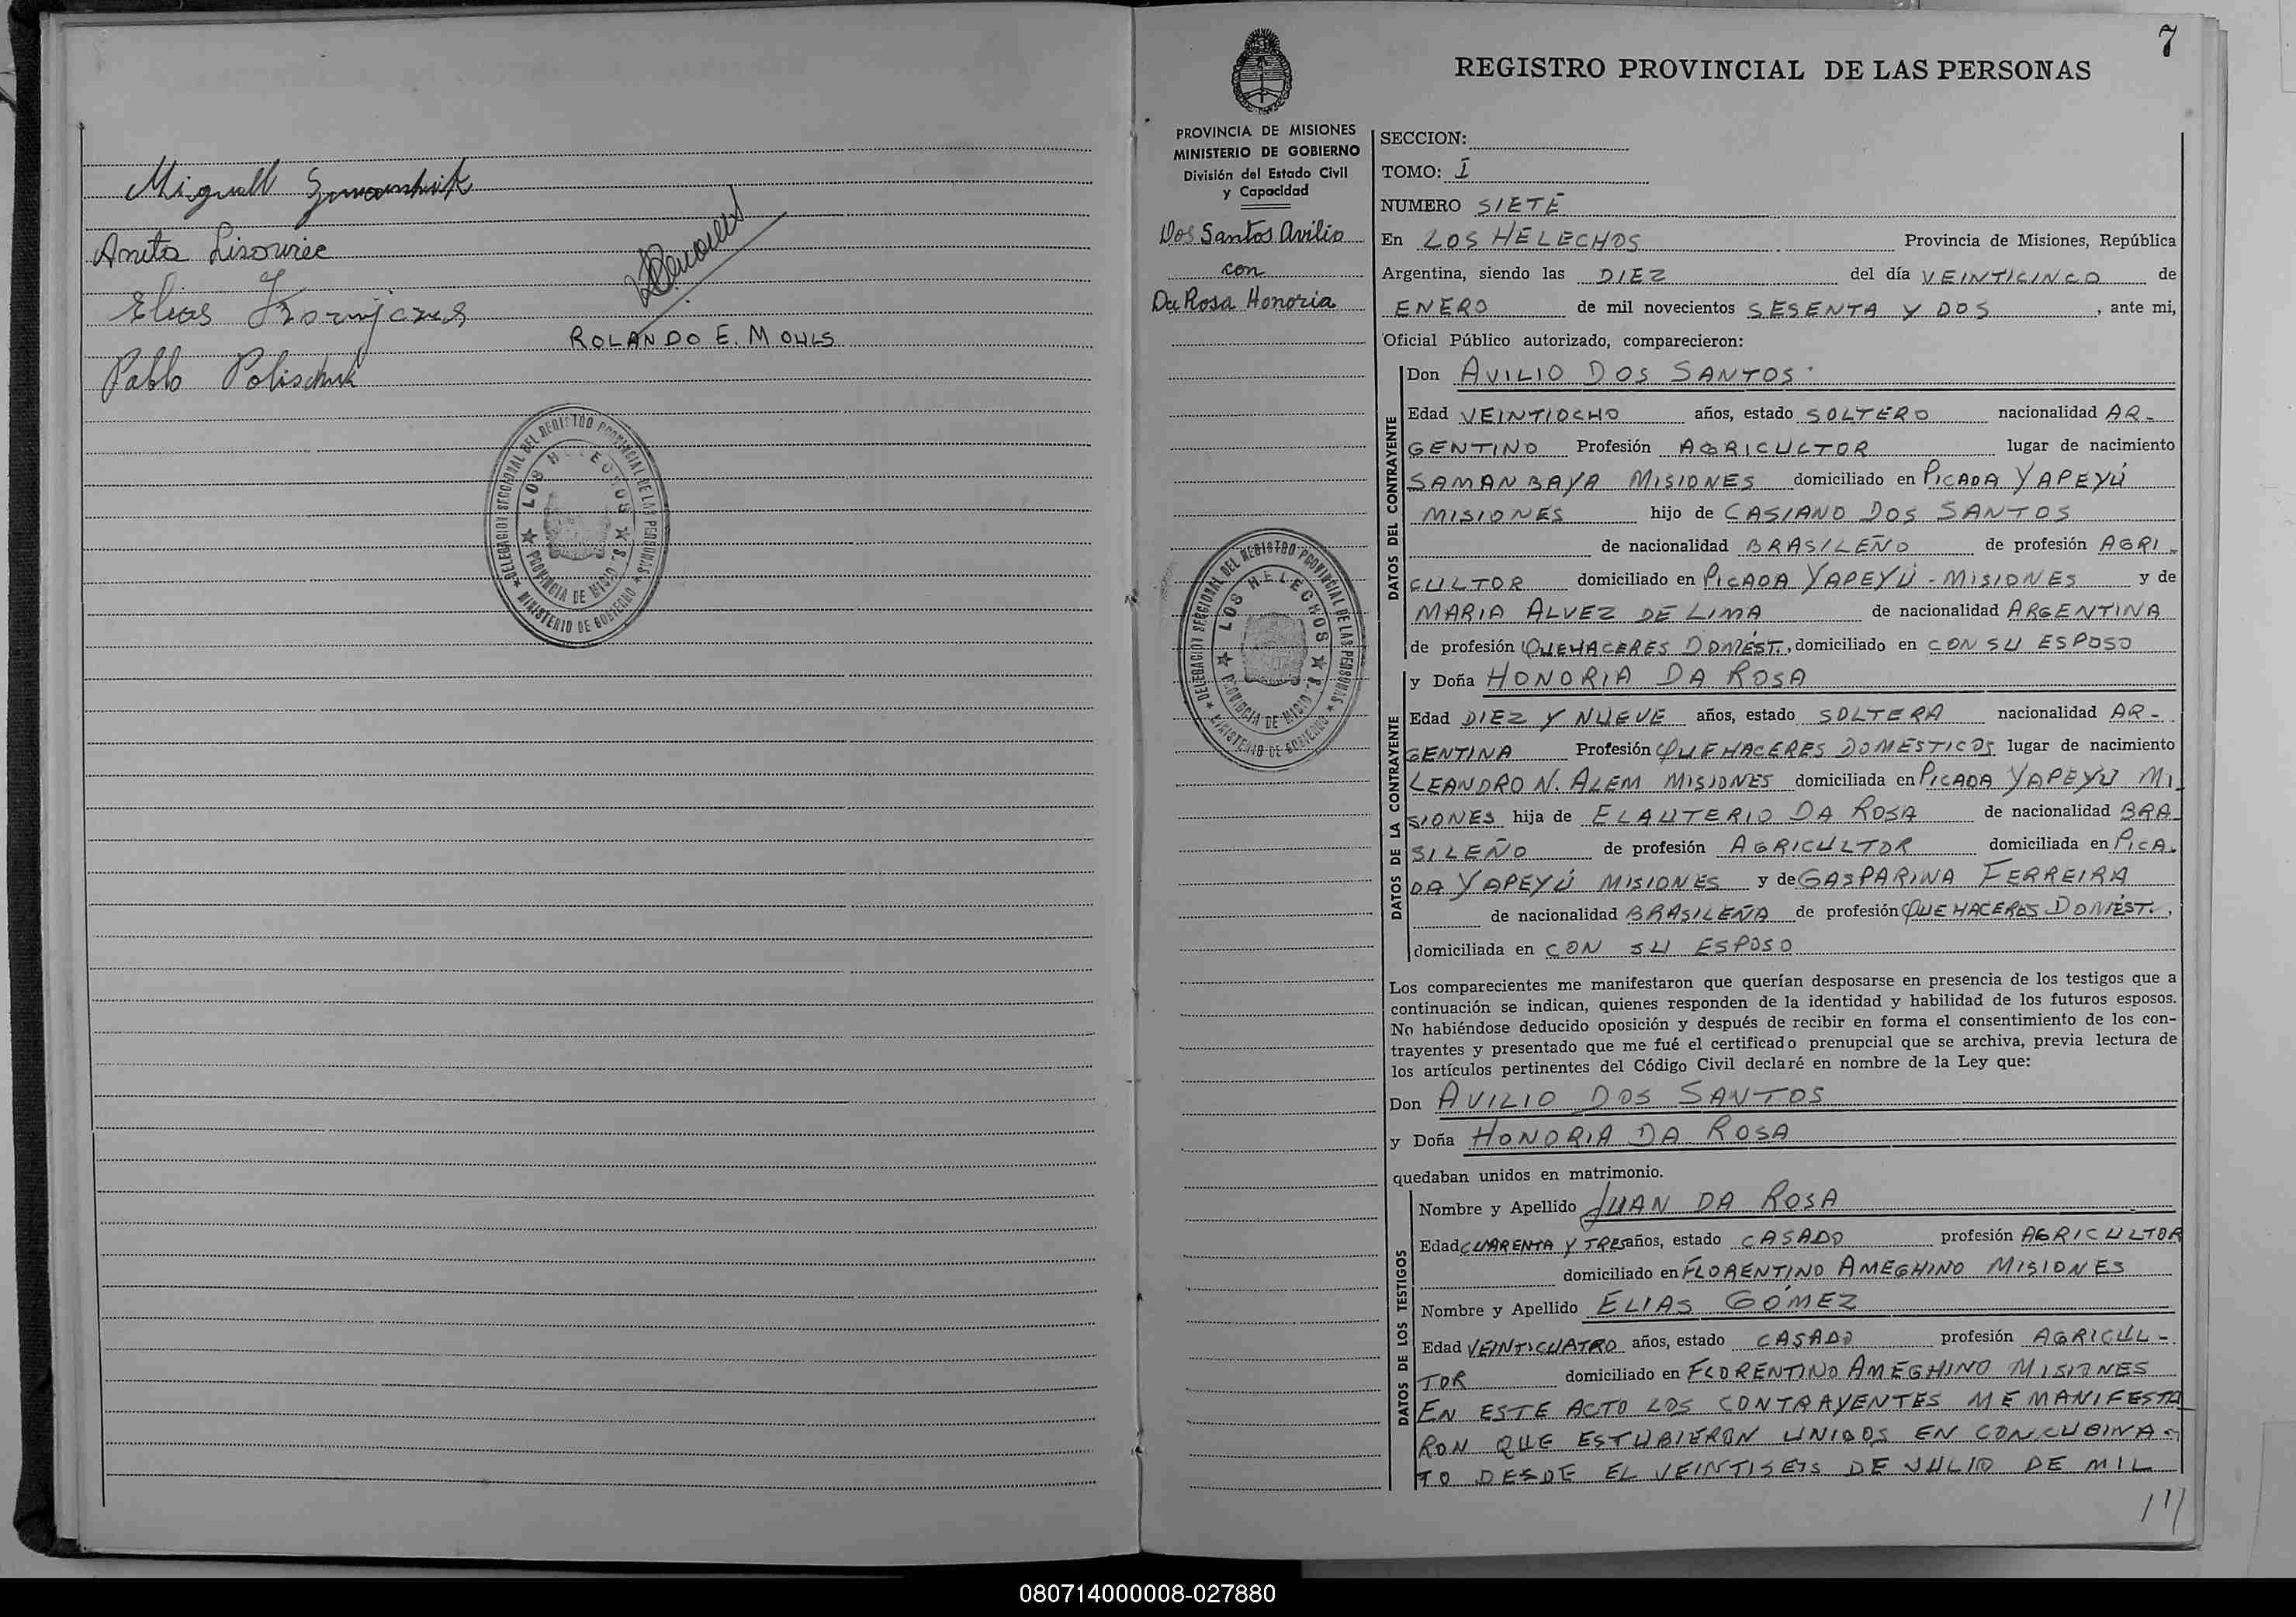 Miguel
Anita Lisowiec
Elias
Pablo Polischuk
ROLANDO E. MOHLS
DELEGACION SECCIONAL DEL REGISTRO PROVINCIAL DE LAS PERSONAS
★ MINISTERIO DE GOBIERNO ★
LOS HELECHOS
★ PROVINCIA DE MISIO S. ★
7
REGISTRO PROVINCIAL DE LAS PERSONAS
PROVINCIA DE MISIONES
MINISTERIO DE GOBIERNO
División del Estado Civil
y Capacidad
Dos Santos Avilio
con
Da Rosa Honoria
DELEGACION SECCIONAL DEL REGISTRO PROVINCIAL DE LAS PERSONAS
★ MINISTERIO DE GOBIERNO ★
LOS HELECHOS
★ PROVINCIA DE MISIO S. ★
SECCION:
TOMO: I
NUMERO SIETE
En LOS HELECHOS Provincia de Misiones, República
Argentina, siendo las DIEZ del día VEINTICINCO de
ENERO de mil novecientos SESENTA Y DOS, ante mi,
Oficial Público autorizado, comparecieron:
DATOS DEL CONTRAYENTE
Don AVILIO DOS SANTOS
Edad VEINTIOCHO años, estado SOLTERO nacionalidad AR-
GENTINO Profesión AGRICULTOR lugar de nacimiento
SAMANBAYA MISIONES domiciliado en PICADA YAPEYÚ
MISIONES hijo de CASIANO DOS SANTOS
de nacionalidad BRASILEÑO de profesión AGRI-
CULTOR domiciliado en PICADA YAPEYÚ - MISIONES y de
MARIA ALVEZ DE LIMA de nacionalidad ARGENTINA
de profesión QUEHACERES DOMÉST., domiciliado en CON SU ESPOSO
DATOS DE LA CONTRAYENTE
y Doña HONORIA DA ROSA
Edad DIEZ Y NUEVE años, estado SOLTERA nacionalidad AR-
GENTINA Profesión QUEHACERES DOMESTICOS lugar de nacimiento
LEANDRO N. ALEM MISIONES domiciliada en PICADA YAPEYÚ MI-
SIONES hija de ELAUTERIO DA ROSA de nacionalidad BRA-
SILEÑO de profesión AGRICULTOR domiciliada en PICA-
DA YAPEYÚ MISIONES y de GASPARINA FERREIRA
de nacionalidad BRASILEÑA de profesión QUEHACERES DOMÉST.,
domiciliada en CON SU ESPOSO
Los comparecientes me manifestaron que querían desposarse en presencia de los testigos que a
continuación se indican, quienes responden de la identidad y habilidad de los futuros esposos.
No habiéndose deducido oposición y después de recibir en forma el consentimiento de los con-
trayentes y presentado que me fué el certificado prenupcial que se archiva, previa lectura de
los artículos pertinentes del Código Civil declaré en nombre de la Ley que:
Don AVILIO DOS SANTOS
y Doña HONORIA DA ROSA
quedaban unidos en matrimonio.
DATOS DE LOS TESTIGOS
Nombre y Apellido JUAN DA ROSA
Edad CUARENTA Y TRES años, estado CASADO profesión AGRICULTOR
domiciliado en FLORENTINO AMEGHINO MISIONES
Nombre y Apellido ELIAS GOMEZ
Edad VEINTICUATRO años, estado CASADO profesión AGRICUL-
TOR domiciliado en FLORENTINO AMEGHINO MISIONES
EN ESTE ACTO LOS CONTRAYENTES ME MANIFESTA-
RON QUE ESTUBIERON UNIDOS EN CONCUBINA-
TO DESDE EL VEINTISEIS DE JULIO DE MIL
///
080714000008-027880